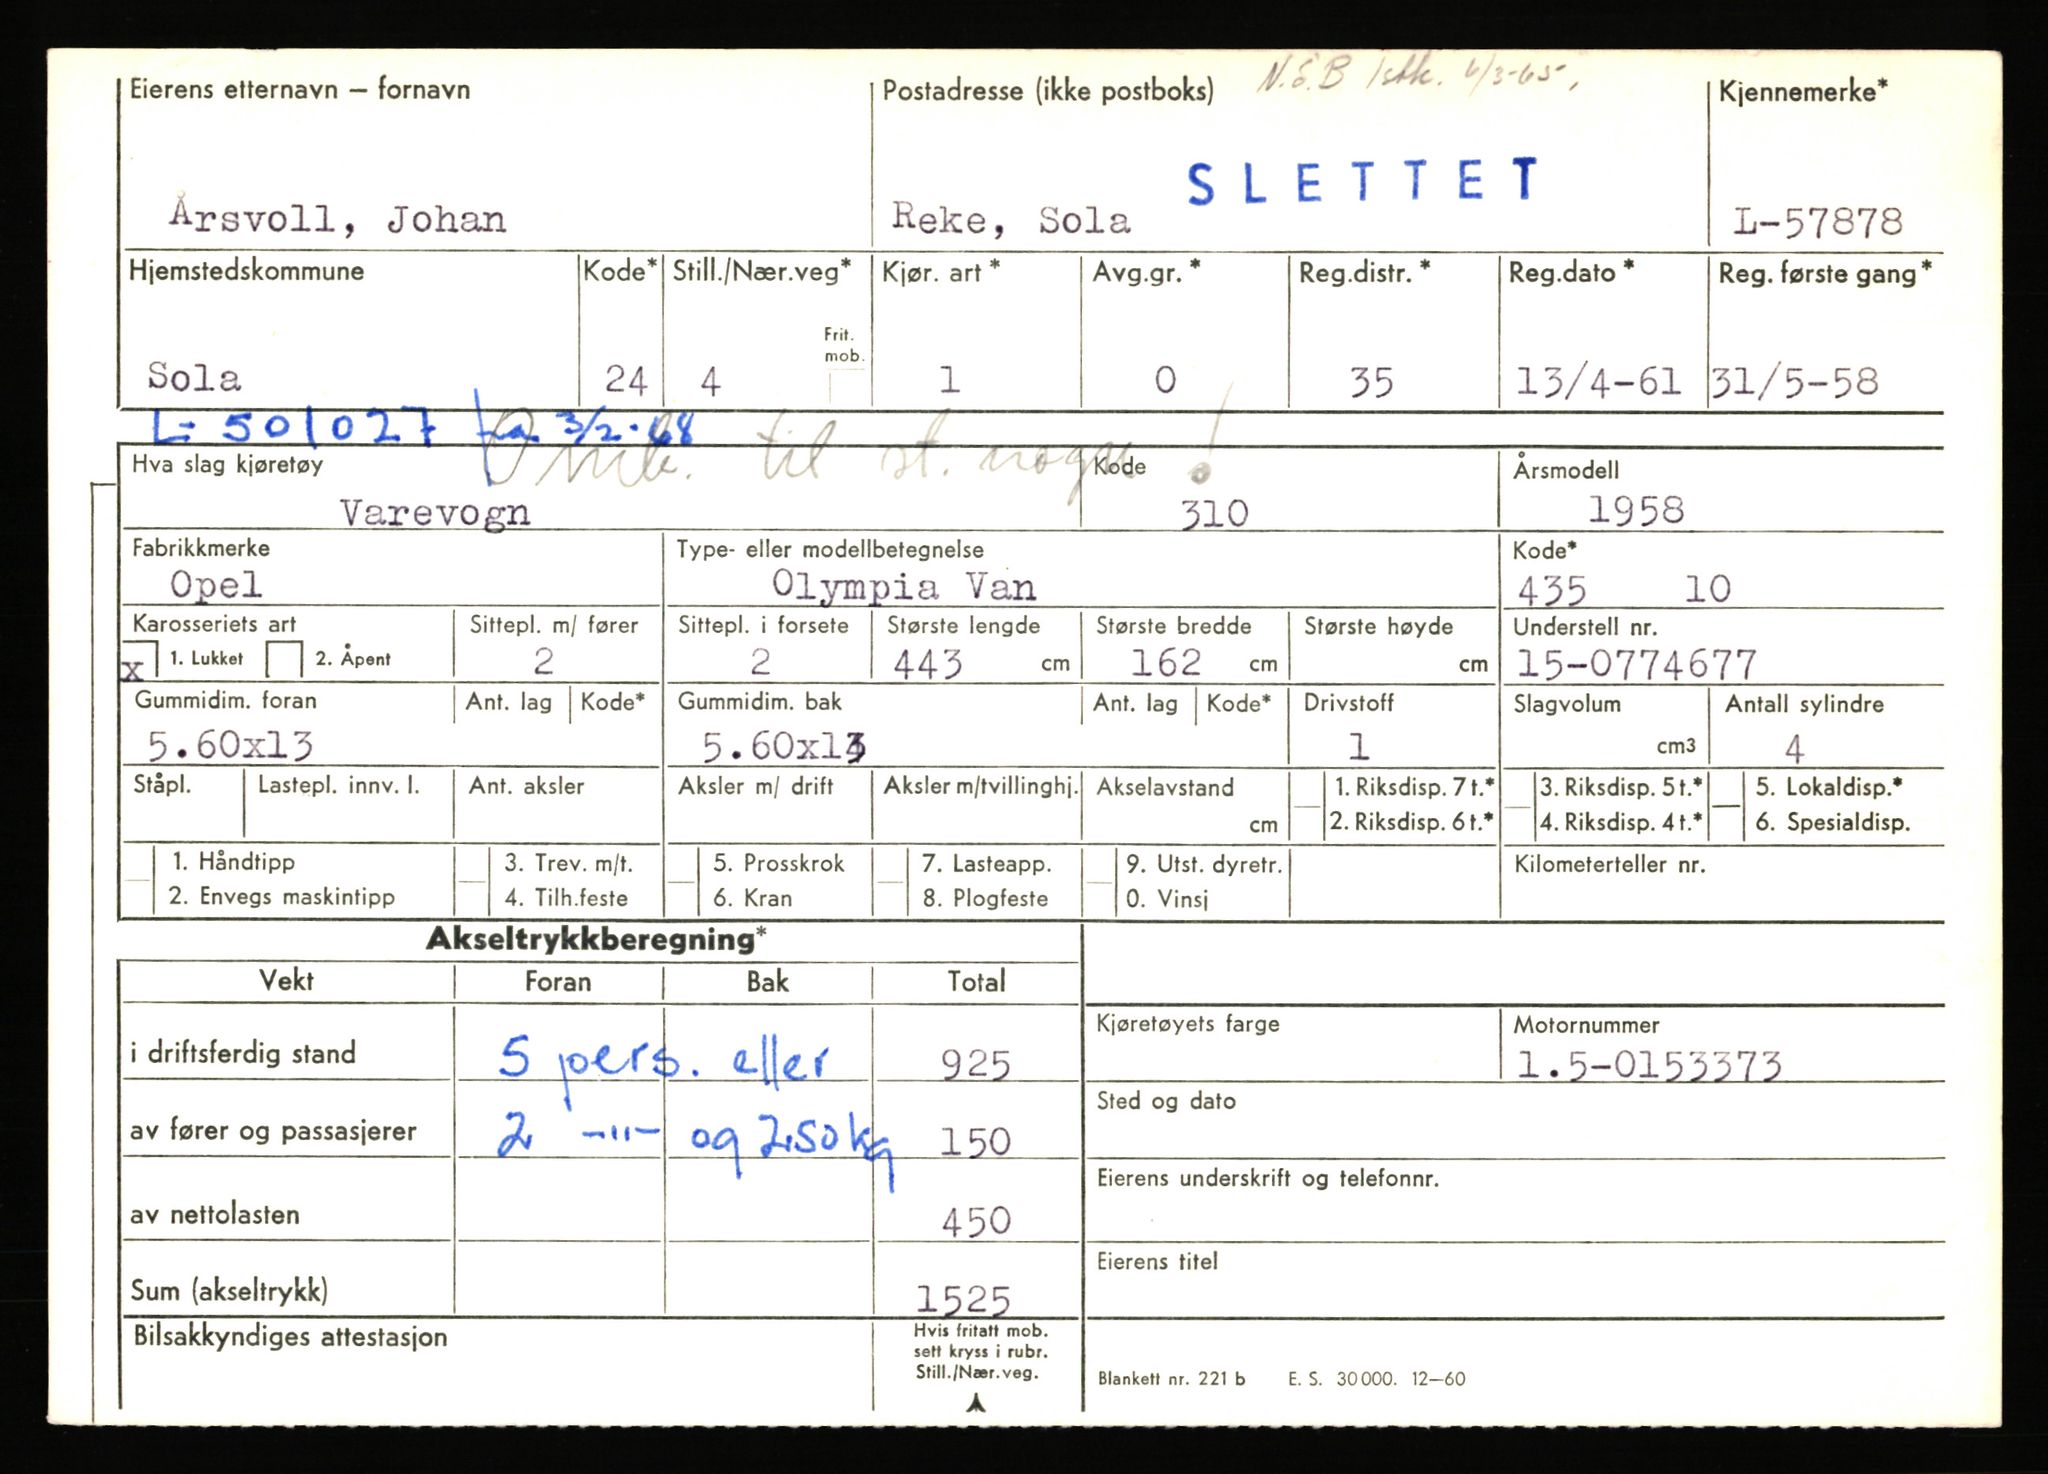 N.E.B 1stk. 6/3-65.
Eierens etternavn – fornavn Postadresse (ikke postboks) Kjennemerke*
SLETTET
Årsvoll, Johan Reke, Sola L-57878
Hjemstedskommune Kode* Still./Nær.veg* Kjør. art* Avg.gr.* Reg.distr.* Reg.dato* Reg. første gang*
Frit.
mob.
Sola 24 4 1 0 35 13/4-61 31/5-58
L-501027 fra 3/2-68
Omb. til st. vogn!
Hva slag kjøretøy Kode Årsmodell
Varevogn 310 1958
Fabrikkmerke Type- eller modellbetegnelse Kode*
Opel Olympia Van 435 10
Karosseriets art Sittepl. m/ fører Sittepl. i forsete Største lengde Største bredde Største høyde Understell nr.
x 1. Lukket 2. Åpent 2 2 443 cm 162 cm cm 15-0774677
Gummidim. foran Ant. lag Kode* Gummidim. bak Ant. lag Kode* Drivstoff Slagvolum Antall sylindre
5.60x13 5.60x13 1 cm3 4
Ståpl. Lastepl. innv. l. Ant. aksler Aksler m/ drift Aksler m/tvillinghj. Akselavstand 1. Riksdisp. 7 t.* 3. Riksdisp. 5 t.* 5. Lokaldisp.*
cm 2. Riksdisp. 6 t.* 4. Riksdisp. 4 t.* 6. Spesialdisp.
1. Håndtipp 3. Trev. m/t. 5. Prosskrok 7. Lasteapp. 9. Utst. dyretr. Kilometerteller nr.
2. Envegs maskintipp 4. Tilh.feste 6. Kran 8. Plogfeste 0. Vinsj
Akseltrykkberegning*
Vekt Foran Bak Total
Kjøretøyets farge Motornummer
i driftsferdig stand 5 pers. eller 925 1.5-0153373
Sted og dato
av fører og passasjerer 2 -"- og 250 kg 150
Eierens underskrift og telefonnr.
av nettolasten 450
Eierens titel
Sum (akseltrykk) 1525
Bilsakkyndiges attestasjon Hvis fritatt mob.
sett kryss i rubr.
Still./Nær.veg.
Blankett nr. 221 b E. S. 30 000. 12–60